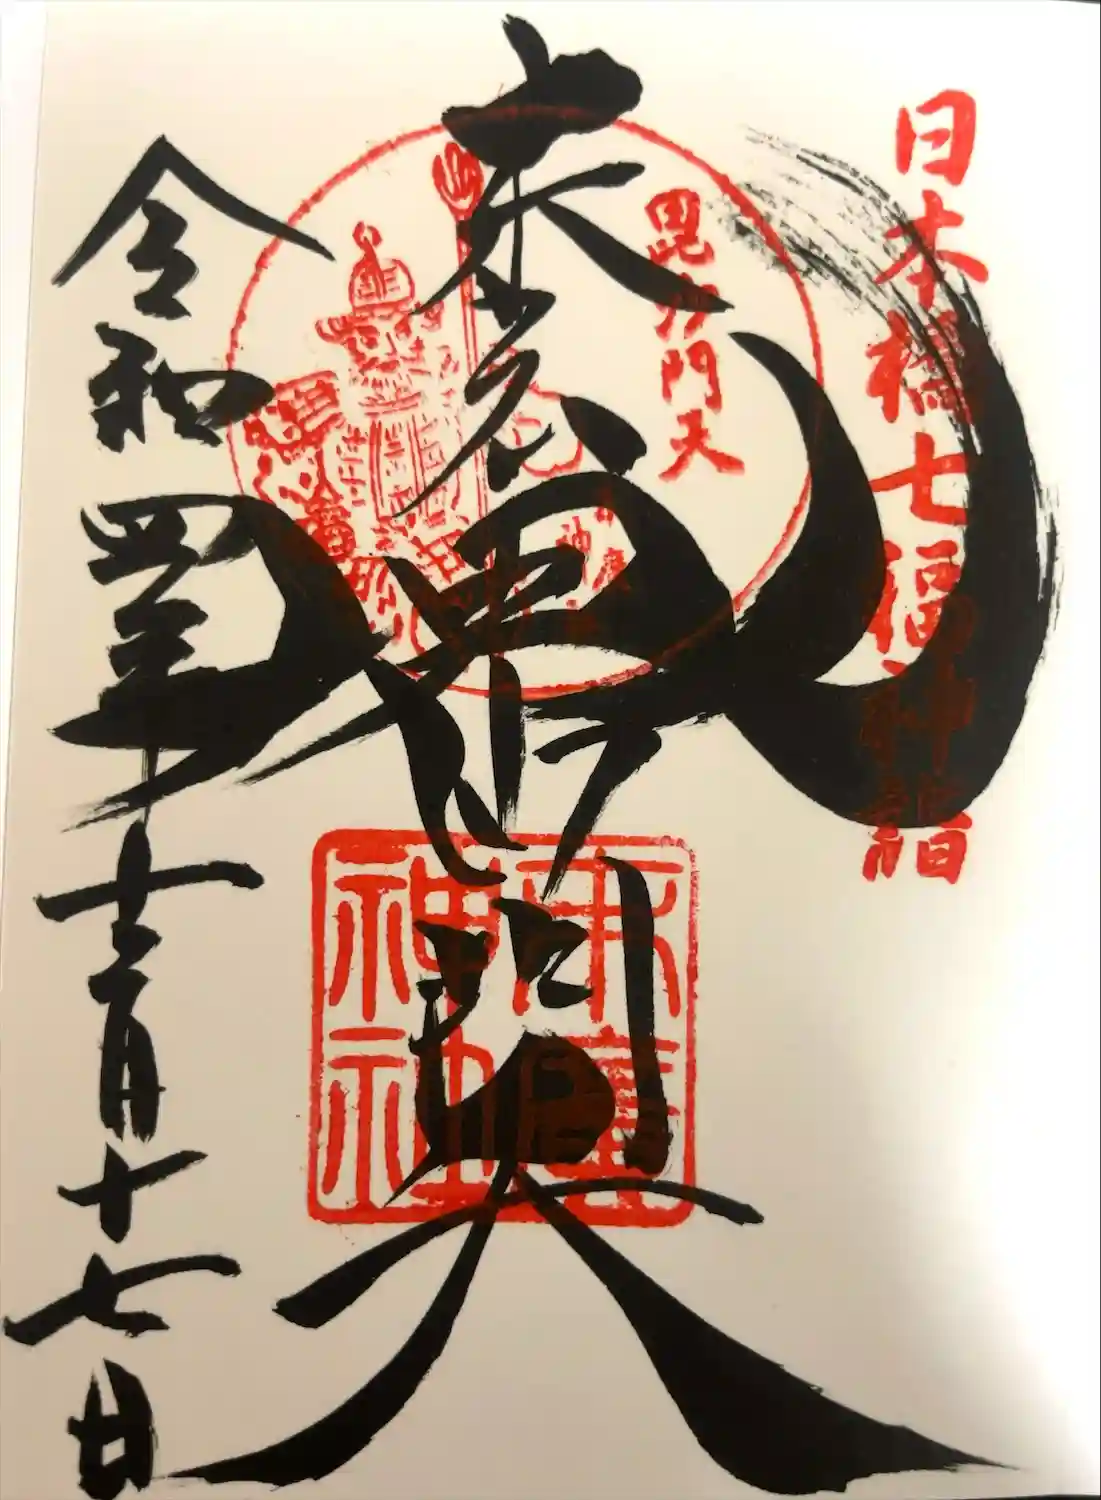 日本橋七福神詣
末広
毘沙門天
毘沙門天
末廣
神社
令和四年十二月十七日